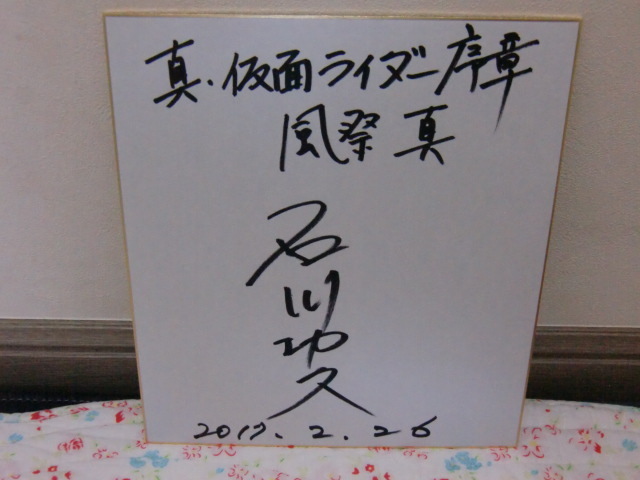 真・仮面ライダー序章
風祭真
石川功久
2017.2.26